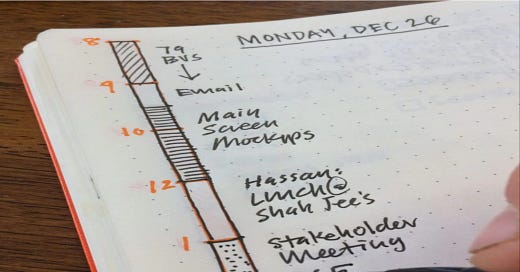 MONDAY, DEC 26
8
79
BVS
↓
9
Email
Main
10
Screen
Mockups
12
Hassan:
Lunch@
Shah Jee's
1
Stakeholder
Meeting